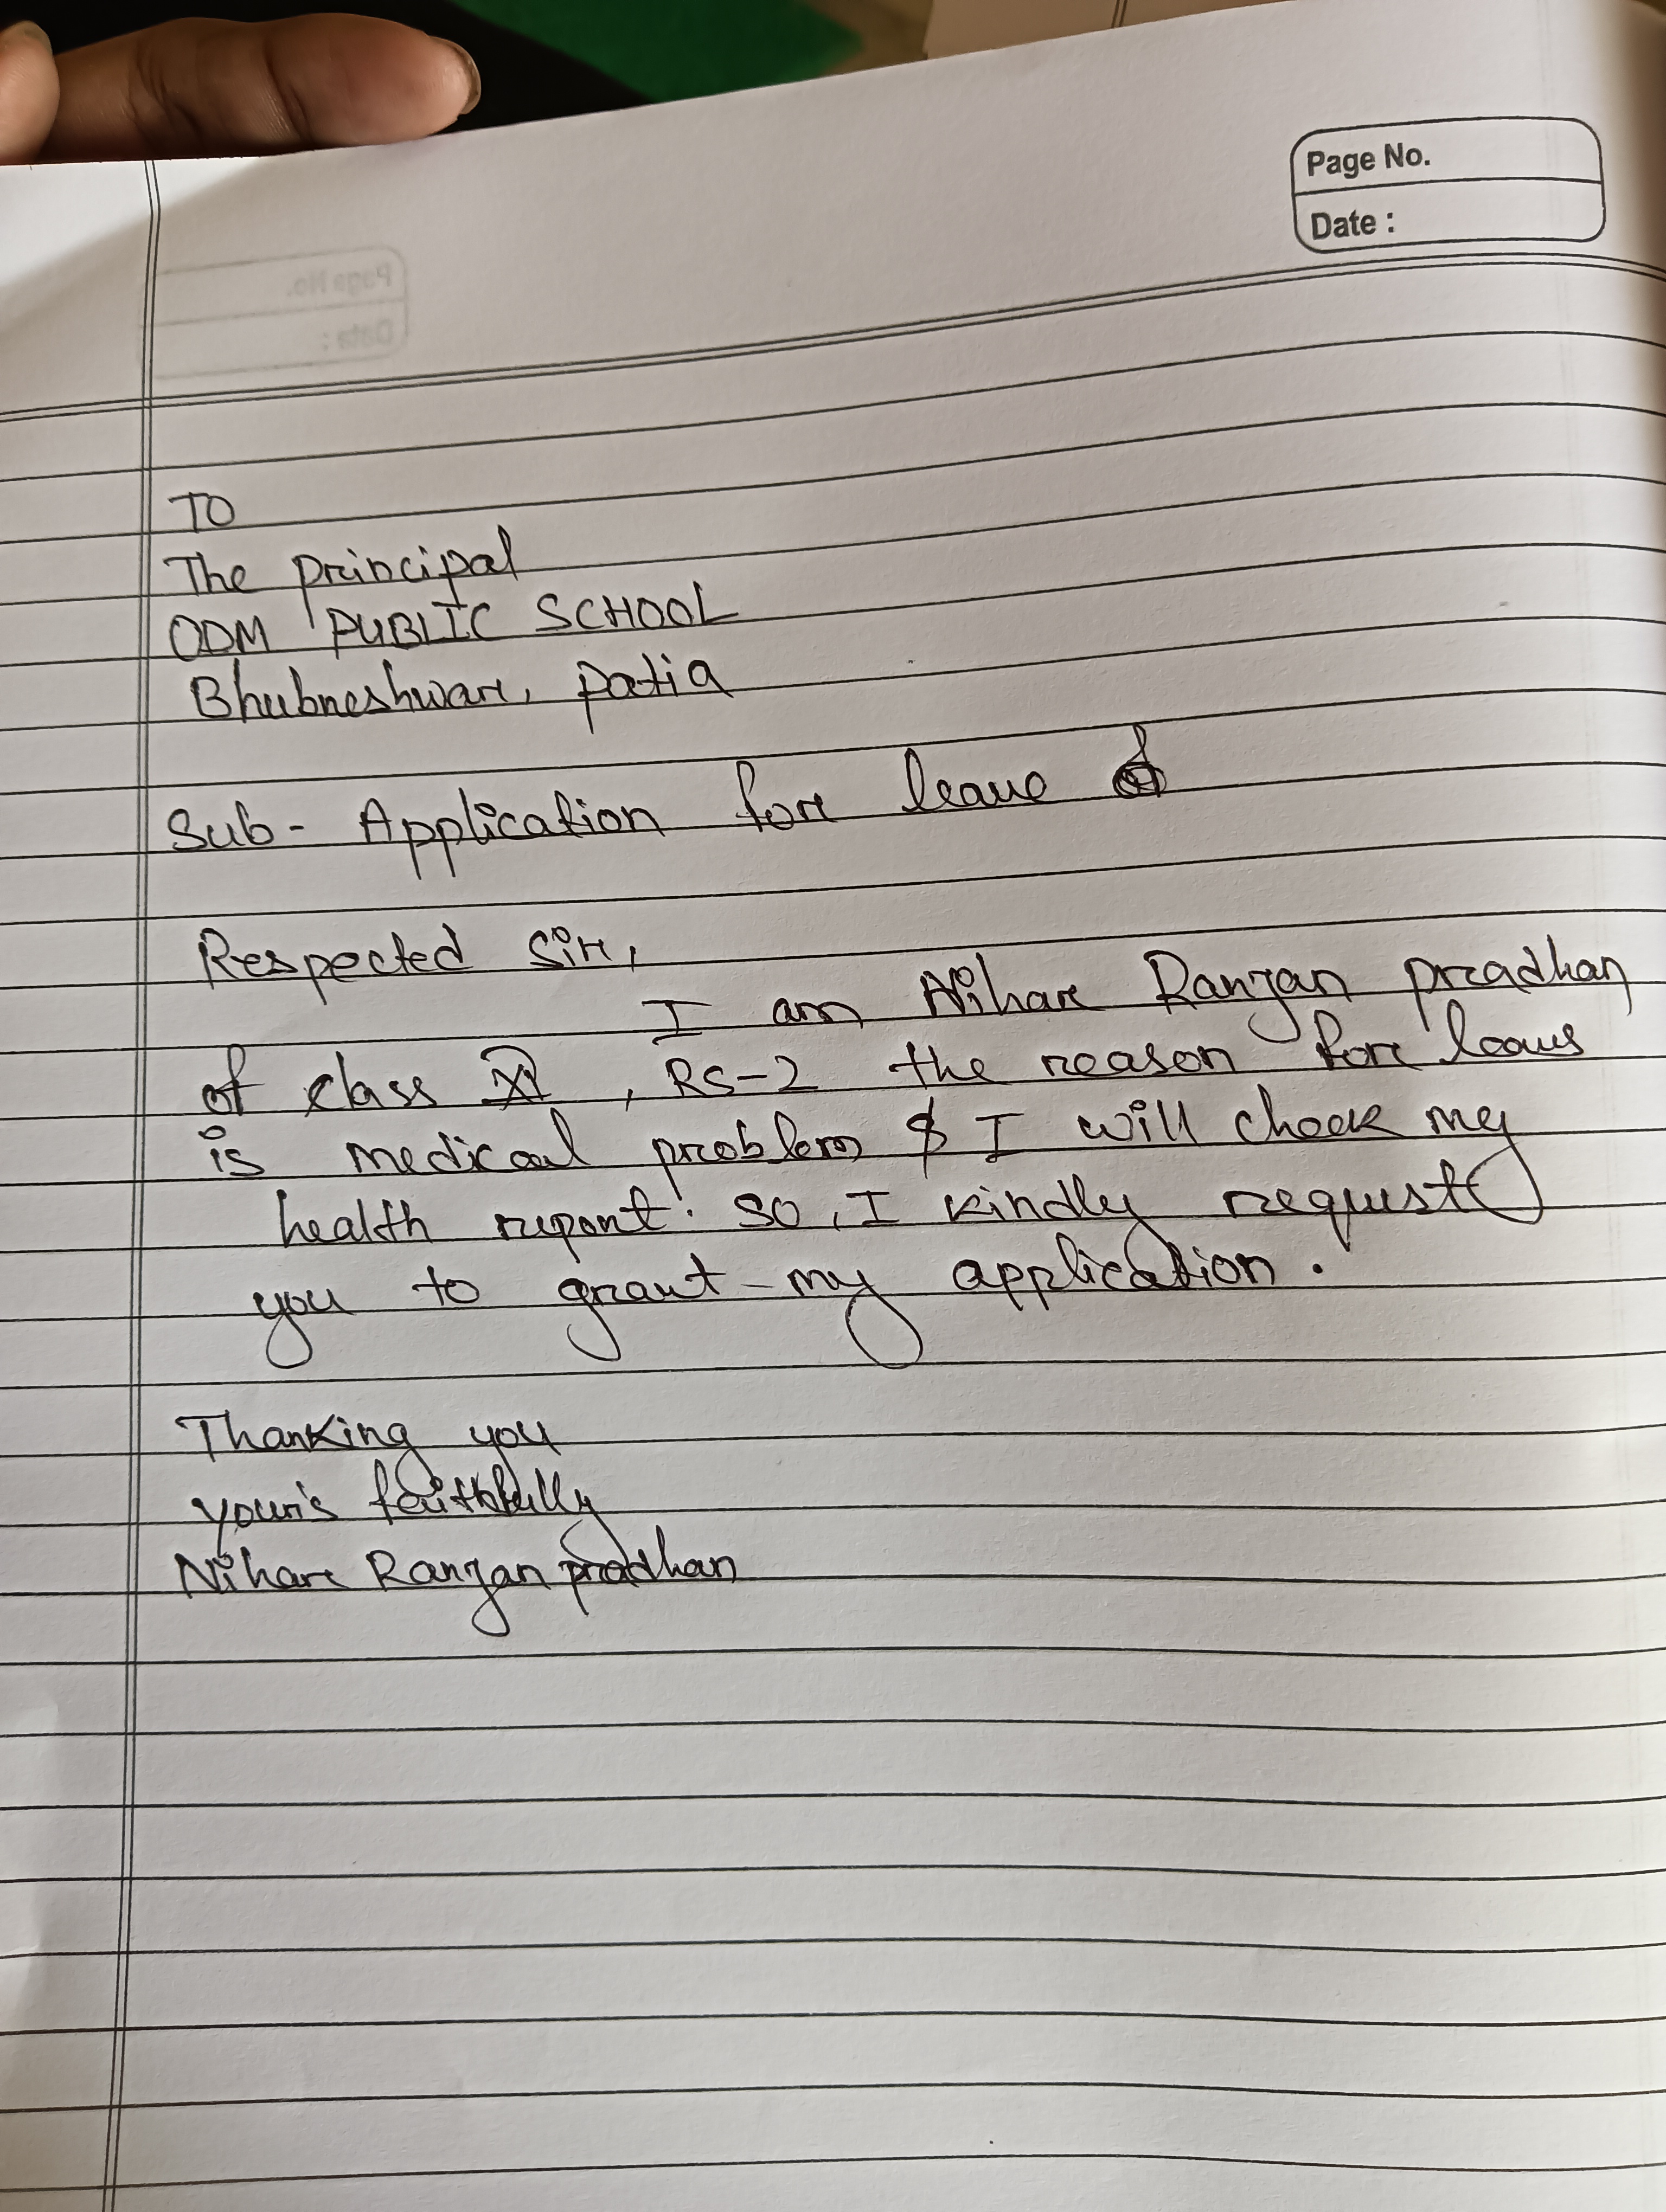 Page No.
Date :
TO
The principal
ODM PUBLIC SCHOOL
Bhubneshwar, patia
Sub- Application for leave
Respected Sir,
I am Nihar Ranjan pradhan
of class XI, RS-2 the reason for leave
is medical problem & I will check my
health report. so, I kindly request
you to grant my application.
Thanking you
your's faithfully
Nihar Ranjan pradhan